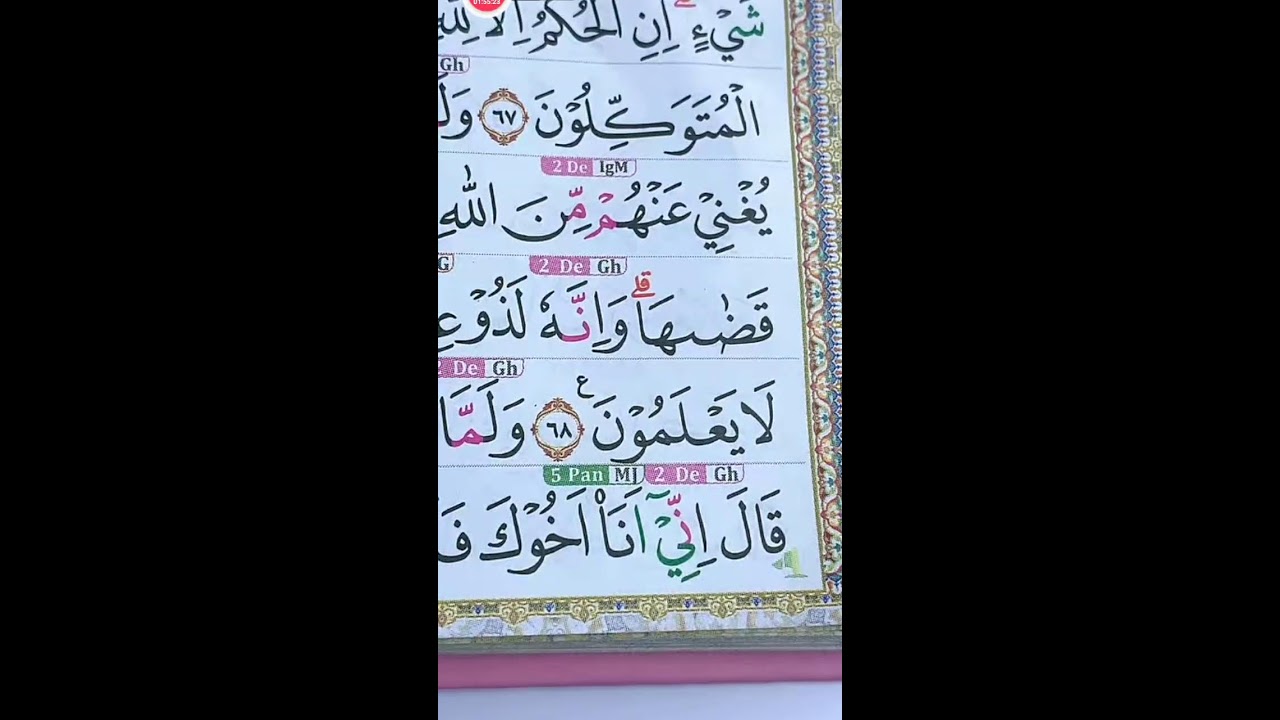 01:55:23
شَيْءٍ ۗ اِنِ الْحُكْمُ اِلَّا لِلّٰهِ
Gh
الْمُتَوَكِّلُوْنَ ٦٧ وَلَ
2 De IgM
يُغْنِيْ عَنْهُمْ مِّنَ اللّٰهِ
G 2 De Gh
قَضٰىهَا ۗ وَاِنَّهٗ لَذُوْ عِ
2 De Gh
لَا يَعْلَمُوْنَ ࣖ ٦٨ وَلَمَّا
5 Pan MJ 2 De Gh
قَالَ اِنِّيْٓ اَنَا۠ اَخُوْكَ فَ